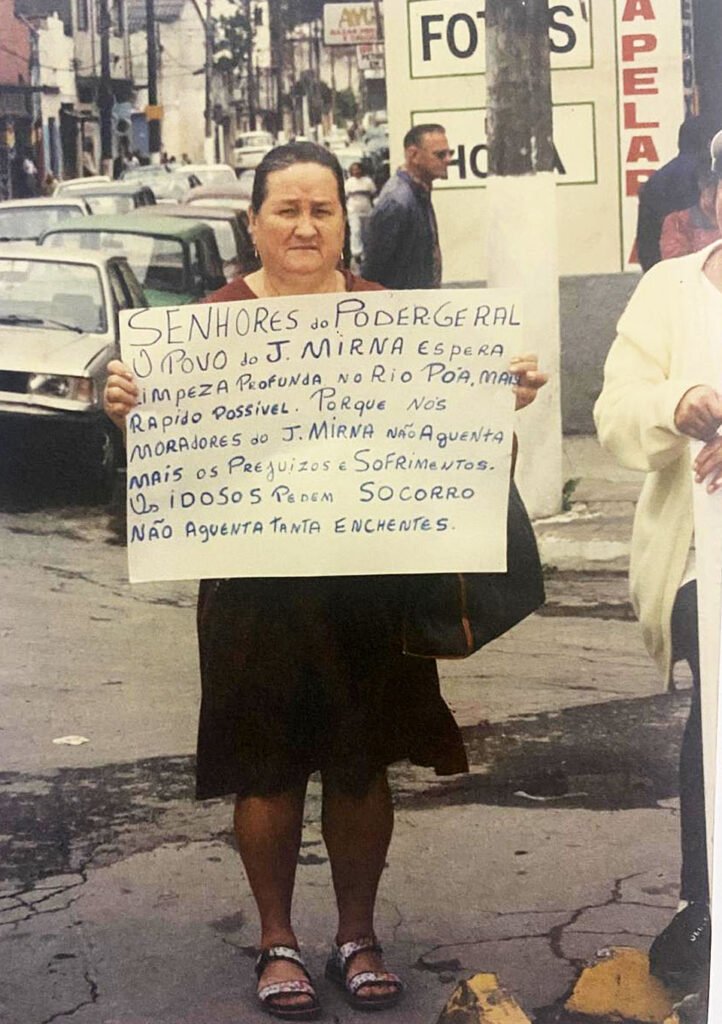 FOTOS
HORA
APELAR
SENHORES do PODER-GERAL
O POVO do J. MIRNA ESPERA
LIMPEZA PROFUNDA NO RIO POÁ, MAIS
RAPIDO POSSIVEL. PORQUE NÓS
MORADORES do J. MIRNA NÃO AGUENTA
MAIS OS PREJUIZOS E SOFRIMENTOS.
Os IDOSOS PEDEM SOCORRO
NÃO AGUENTA TANTA ENCHENTES.